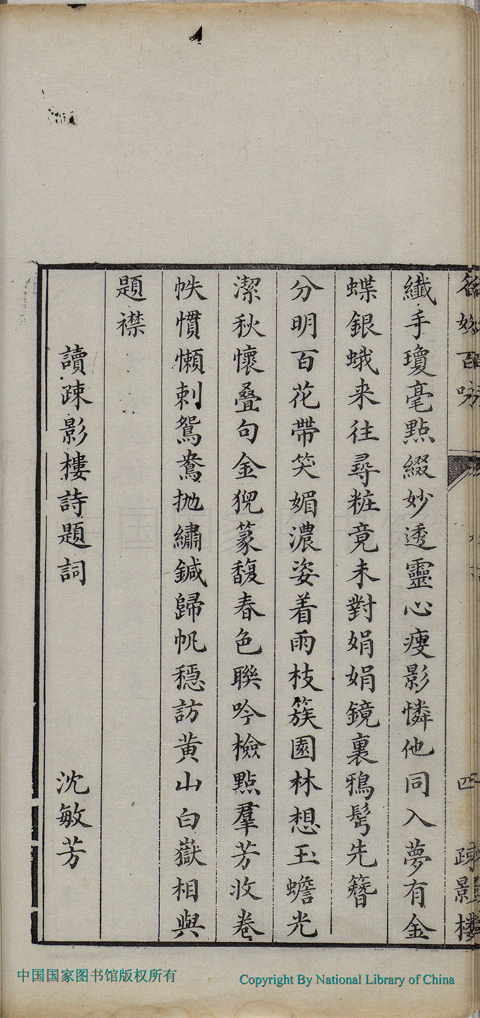 名妙百吟 四 疎影樓
纖手瓊毫點綴妙透靈心瘦影憐他同入夢有金
蝶銀蛾来往尋粧竟未對娟娟鏡裏鴉髩先簪
分明百花帶笑媚濃姿着雨枝簇園林想玉蟾光
潔秋懷叠句金猊篆馥春色聯吟檢點羣芳收卷
帙慣懶刺鴛鴦抛繡鍼歸帆穩訪黃山白嶽相與
題襟
讀疎影樓詩題詞 沈敏芳
中国国家图书馆版权所有
Copyright By National Library of China